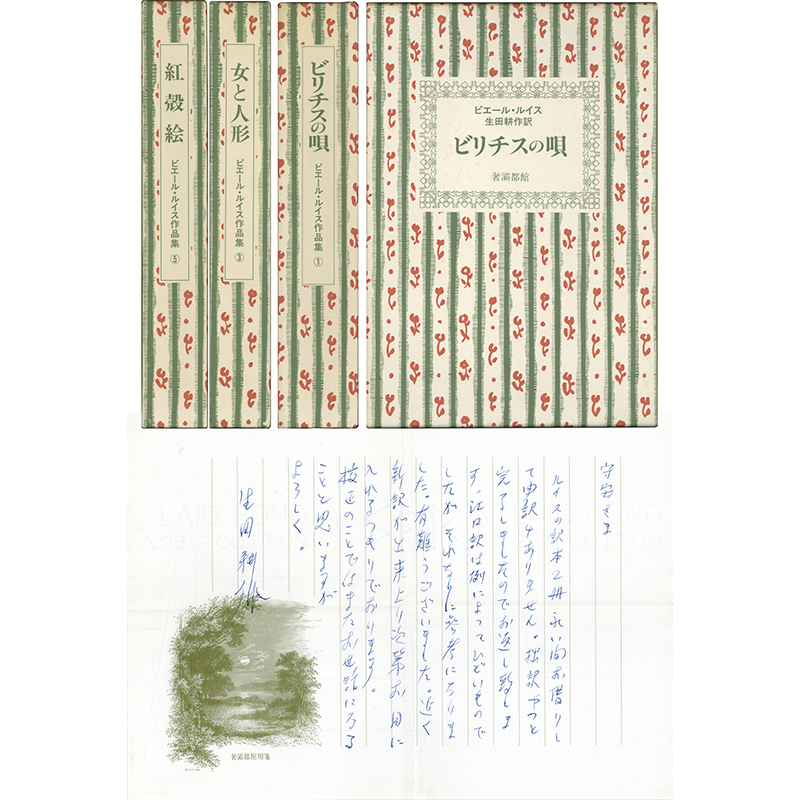 紅殻絵
ピエール・ルイス作品集
⑤
女と人形
ピエール・ルイス作品集
③
ビリチスの唄
ピエール・ルイス作品集
①
ピエール・ルイス
生田耕作訳
ビリチスの唄
奢灞都館
守安さま
ルイスの訳本2冊永い間お借りし
て申訳ありません。拙訳やっと
完了しましたのでお返し致しま
す。江口訳は例によってひどいもので
したが それなりに参考になりま
した。有難うございました。近く
新訳が出来上り次第お目に
入れるつもりでおります。
校正のことではまたお世話になる
ことと思いますが
よろしく。
生田耕作
奢灞都館用箋
LAID
25% COTTON
COTTON